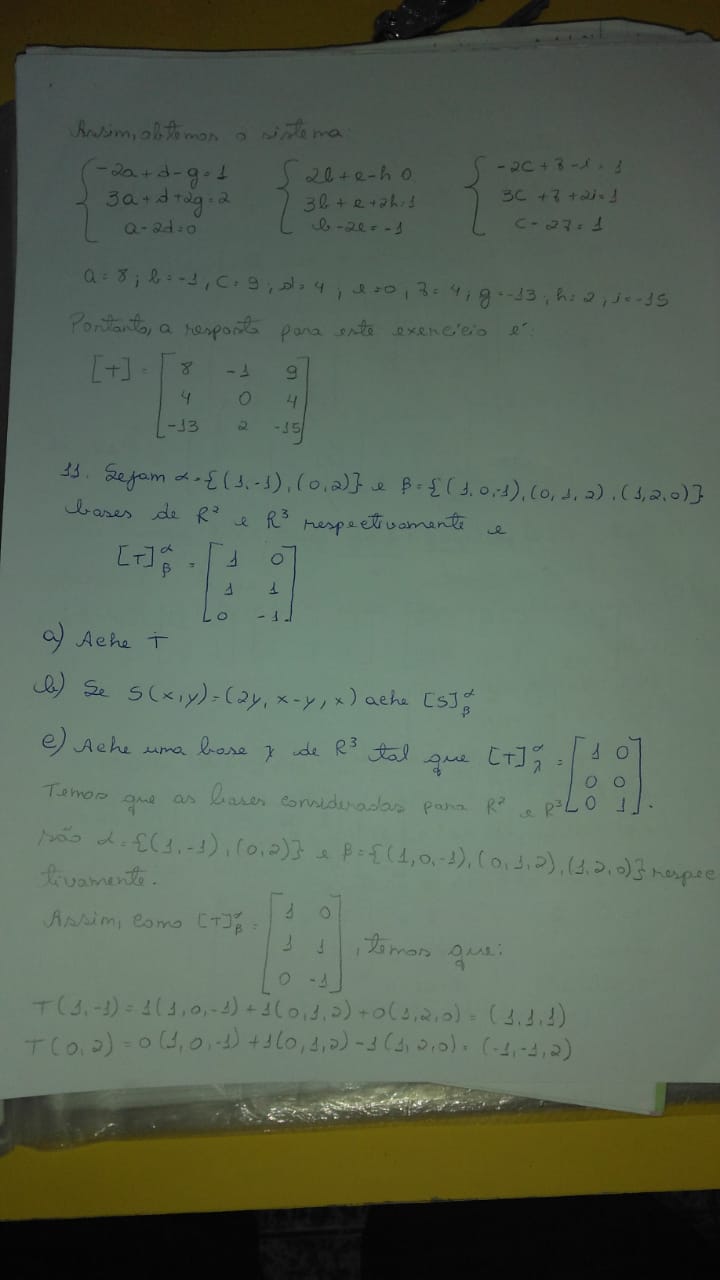 Assim, obtemos o sistema:
{-2a+d-g=1 {2b+e-h=0 {-2c+f-i=1
3a+d+2g=2 3b+e+2h=1 3c+f+2i=1
a-2d=0 b-2e=-1 c-2f=1
a=8; b=-1, c=9; d=4; e=0, f=4; g=-13, h=2, i=-15
Portanto, a resposta para este exercício é:
[T]=[8 -1 9
4 0 4
-13 2 -15]
11. Sejam α={(1,-1),(0,2)} e β={(1,0,-1),(0,1,2),(1,2,0)}
bases de R² e R³ respectivamente e
[T]^α_β=[1 0
1 1
0 -1]
a) Ache T
b) Se S(x,y)=(2y, x-y, x) ache [S]^α_β
c) Ache uma base γ de R³ tal que [T]^α_γ=[1 0
0 0
0 1].
Temos que as bases consideradas para R² e R³
são α={(1,-1),(0,2)} e β={(1,0,-1),(0,1,2),(1,2,0)} respec
tivamente.
Assim, como [T]^α_β=[1 0
1 1
0 -1], temos que:
T(1,-1)=1(1,0,-1)+1(0,1,2)+0(1,2,0)=(1,1,1)
T(0,2)=0(1,0,-1)+1(0,1,2)-1(1,2,0)=(-1,-1,2)